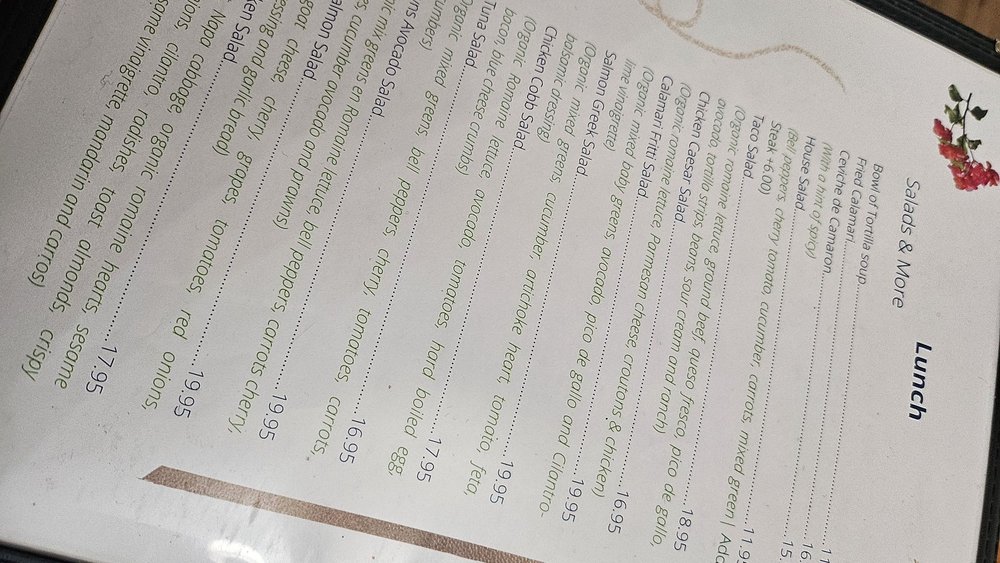 Lunch
Salads & More
Bowl of Tortilla soup
Fried Calamari.....16.
Ceviche de Camaron.....15.
(With a hint of spicy)
House Salad.....11.95
(Bell peppers, chery tomato, cucumber, carrots, mixed green | Add
Steak +6.00)
Taco Salad.....18.95
(Organic romaine lettuce, ground beef, queso fresco, pico de gallo,
avocado, tortilla strips, beans, sour cream and ranch)
Chicken Caesar Salad.....16.95
(Organic romaine lettuce, Parmesan cheese, croutons & chicken)
Calamari Fritti Salad.....19.95
(Organic mixed baby greens, avocado, pico de gallo and Cilantro-
lime vinagrete)
Salmon Greek Salad.....19.95
(Organic mixed greens, cucumber, artichoke heart, tomato, feta,
balsamic dressing)
Chicken Cobb Salad.....17.95
(Organic Romaine lettuce, avocado, tomatoes, hard boiled egg,
bacon, blue cheese crumbs)
Tuna Salad.....16.95
mixed greens, bell peppers, cherry, tomatoes, carrots,
Avocado Salad.....19.95
mix greens en Romaine lettuce, bell peppers, carrots cherry,
cucumber, avocado and prawns)
Salmon Salad.....19.95
cheese, chery, grapes, tomatoes, red onions,
and garlic bread)
Salad.....17.95
Napa cabbage, organic romaine hearts, sesame
cilantro, radishes, toast almonds, crispy
vinaigrette, mandarin and carros)